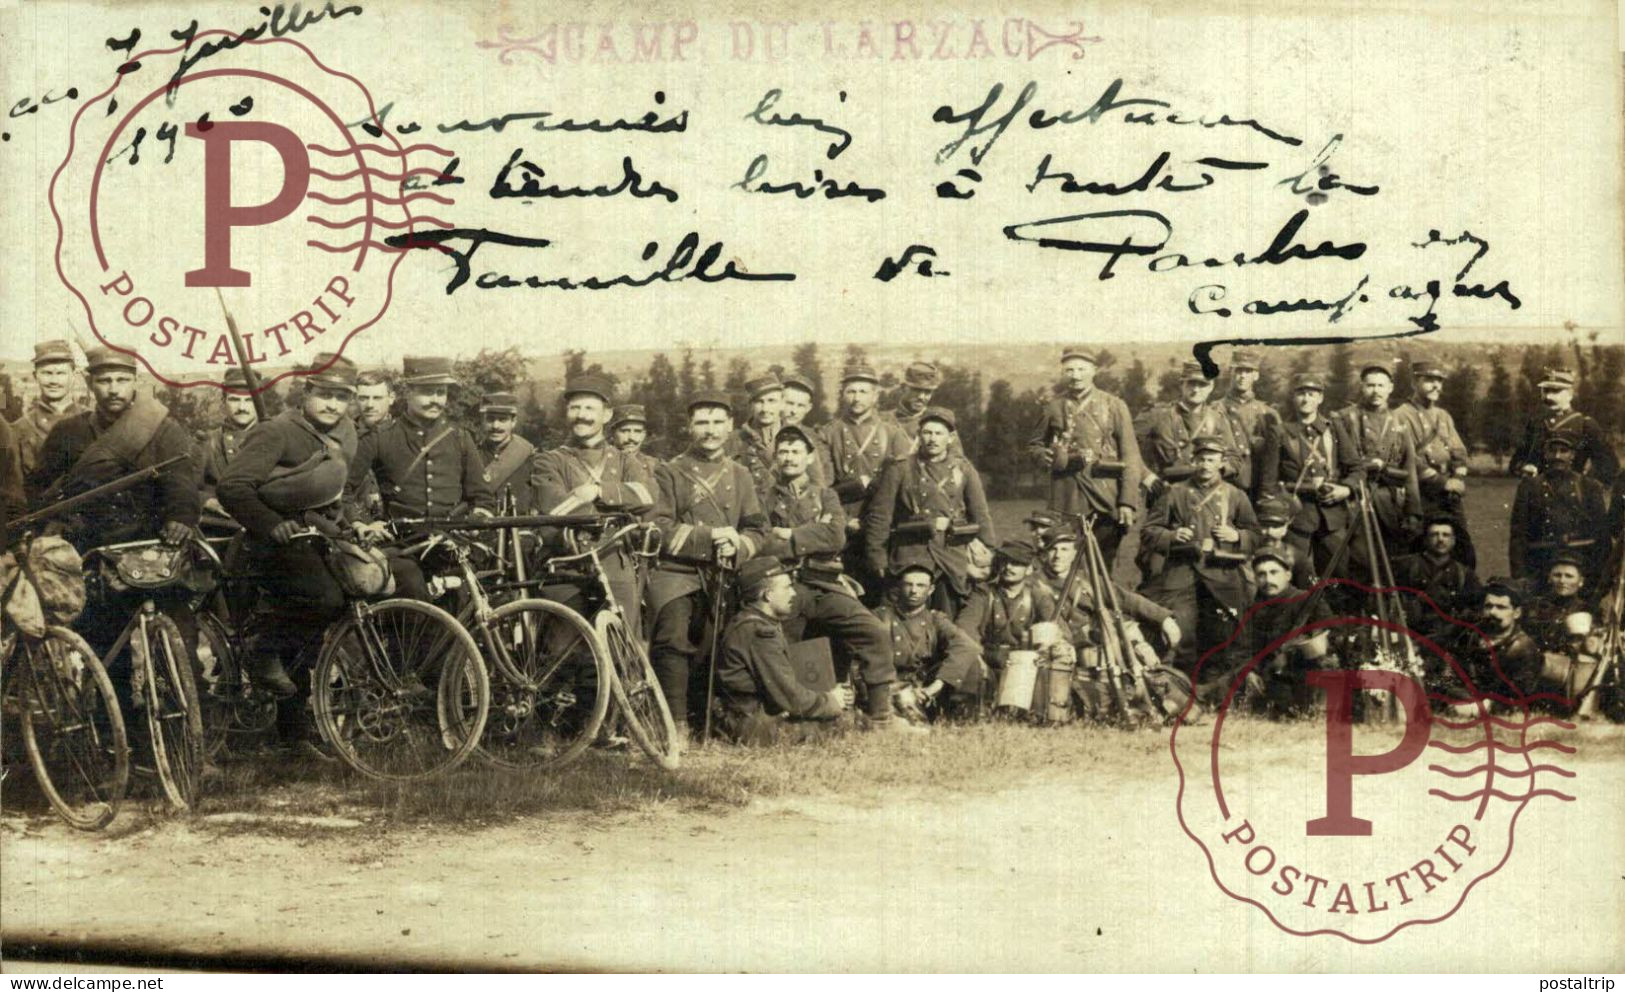 CAMP DU LARZAC
7 Juillet
Souvenirs bien affectueux
et tendres bises à toute la
Famille de
campagne
P
POSTALTRIP
8
P
POSTALTRIP
postaltrip